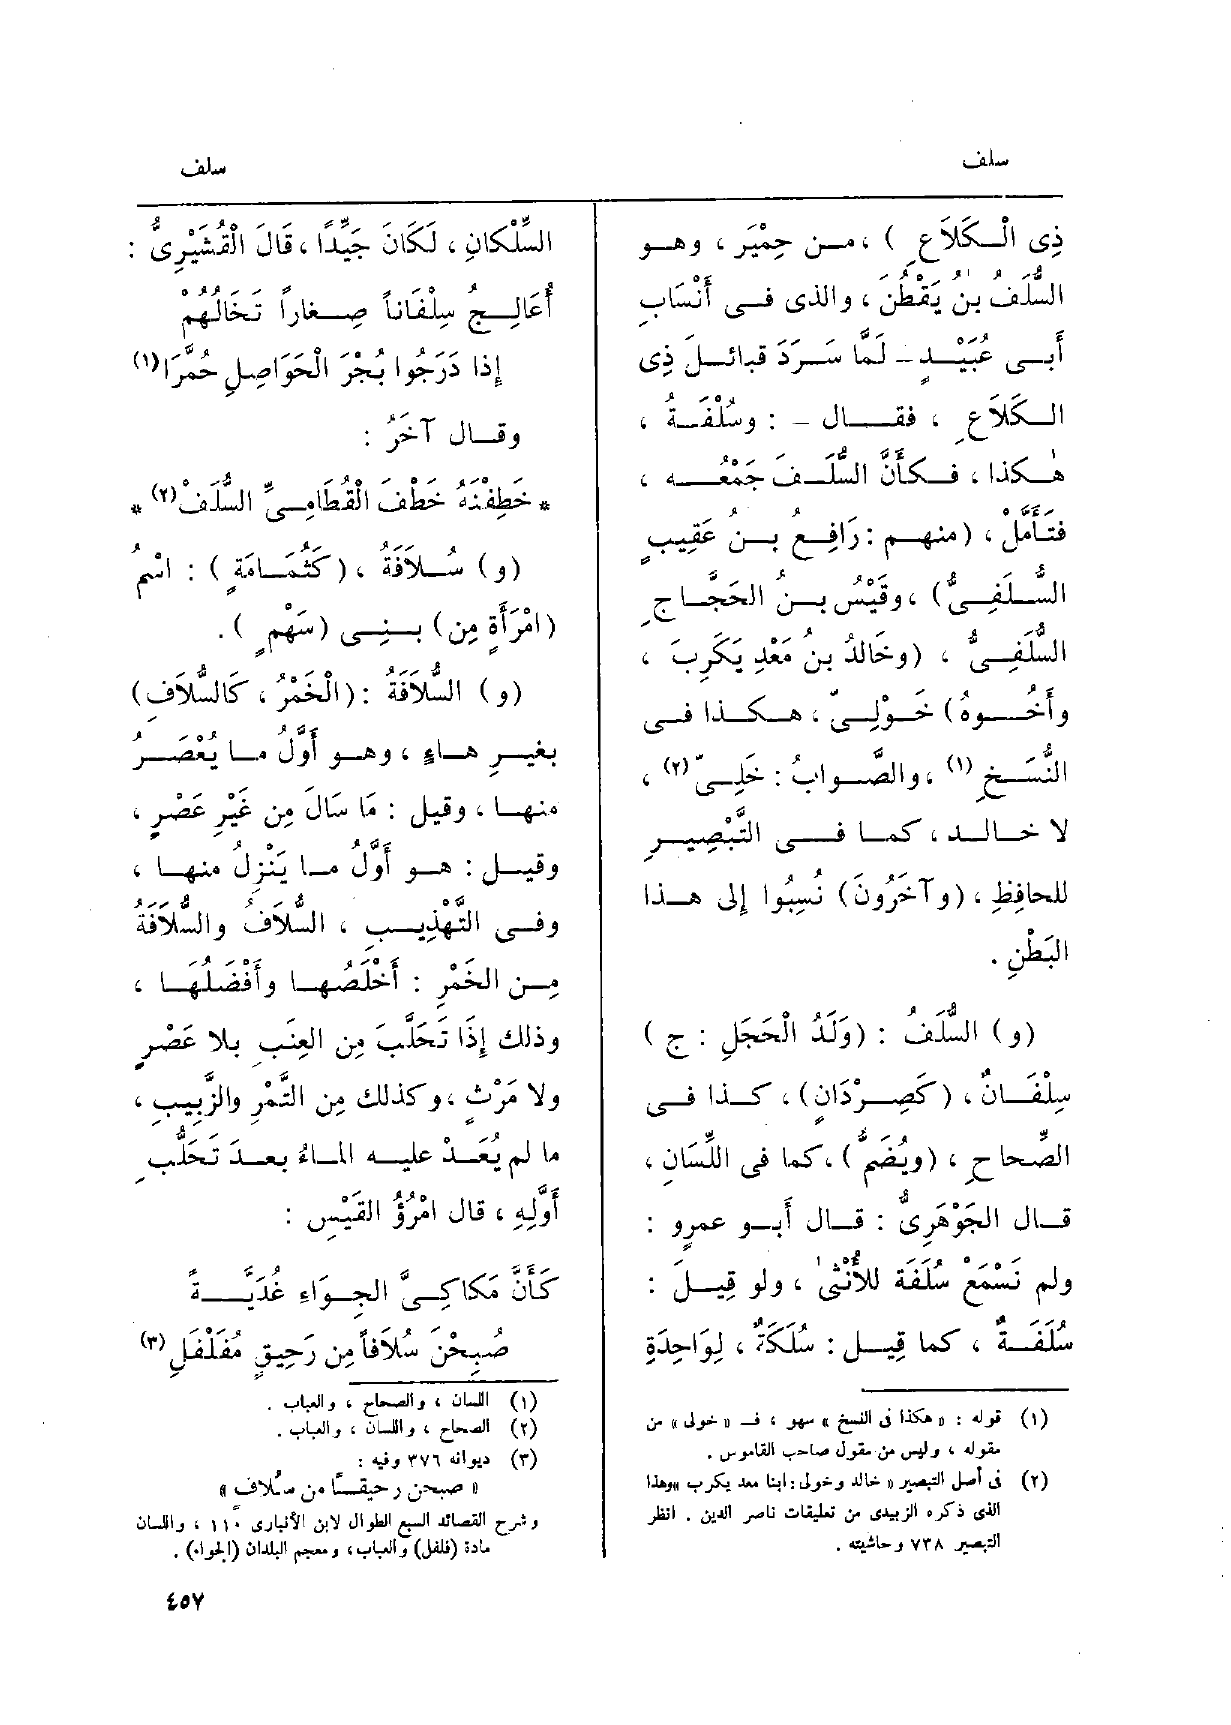 سلف
سلف
ذِى الْكَلَاعِ) ، من حِمْيَر ، وهو
السُّلَفُ بن يَقْطُنَ ، والذى فى أَنْسَابِ
أَبى عُبَيْدٍ ـ لَمَّا سَرَدَ قبائلَ ذِى
الكَلَاعِ ، فقال ـ : وسُلْفَةُ ،
هٰكذا ، فكأَنَّ السُّلَفَ جَمْعُه ،
فتَأَمَّلْ ، (منهم : رَافِعُ بنُ عَقِيبٍ
السُّلَفِىُّ) ، وقَيْسُ بنُ الحَجَّاجِ
السُّلَفِىُّ ، (وخَالدُ بنُ مَعْدِ يَكَرِبَ ،
وأَخُوهُ) خَوْلِىّ ، هكذا فى
النُّسَخِ (١) ، والصَّوابُ : خَلِىّ (٢) ،
لا خالد ، كما فى التَّبْصِيرِ
للحافِظِ ، (وآخَرُونَ) نُسِبُوا إلى هذا
البَطْنِ .
(و) السُّلَفُ : (وَلَدُ الْحَجَلِ : ج)
سِلْفَانٌ ، (كَصِرْدَانٍ) ، كذا فى
الصِّحاحِ ، (ويُضَمُّ) ، كما فى اللِّسَانِ ،
قال الجَوْهَرِىُّ : قال أَبو عمرٍو :
ولم نَسْمَعْ سُلَفَة للأُنْثَىٰ ، ولو قِيلَ :
سُلَفَةٌ ، كما قِيل : سُلَكَةٌ ، لِوَاحِدَةِ
(١) قوله : «هكذا فى النسخ» سهو ، فـ «خولى» من
مقوله ، وليس من مقول صاحب القاموس .
(٢) فى أصل التبصير «خالد وخولى : ابنا معد يكرب» وهذا
الذى ذكره الزبيدى من تعليقات ناصر الدين . انظر
التبصير ٧٣٨ وحاشيته .
السِّلْكانِ ، لَكَانَ جَيِّدًا ، قَالَ الْقُشَيْرِىُّ :
أُعَالِجُ سِلْفَاناً صِغاراً تَخَالُهُمْ
إِذا دَرَجُوا بُجْرَ الْحَوَاصِلِ حُمَّرَا (١)
وقال آخَرُ :
* خَطِفْنَهُ خَطْفَ الْقُطَامِىِّ السُّلَفْ (٢) *
(و) سُلَافَةُ ، (كَثُمَامَةٍ) : اسْمُ
(امْرَأَةٍ مِن) بَنِى (سَهْمٍ) .
(و) السُّلَافَةُ : (الْخَمْرُ ، كَالسُّلَافِ)
بغيرِ هاءٍ ، وهو أَوَّلُ ما يُعْصَرُ
منها ، وقيل : مَا سَالَ مِن غَيْرِ عَصْرٍ ،
وقيل : هو أَوَّلُ ما يَنْزِلُ منها ،
وفى التَّهْذِيبِ ، السُّلَافُ والسُّلَافَةُ
مِن الخَمْرِ : أَخْلَصُها وأَفْضَلُها ،
وذلك إِذَا تَحَلَّبَ مِن العِنَبِ بلا عَصْرٍ
ولا مَرْثٍ ، وكذلك مِن التَّمْرِ والزَّبِيبِ ،
ما لم يُعَدْ عليه الماءُ بعدَ تَحَلُّبِ
أَوَّلِهِ ، قال امْرُؤُ القَيْسِ :
كَأَنَّ مَكَاكِىَّ الجِوَاءِ غُدَيَّةً
صُبِحْنَ سُلَافاً مِن رَحِيقٍ مُفَلْفَلِ (٣)
(١) اللسان ، والصحاح ، والعباب .
(٢) الصحاح ، واللسان ، والعباب .
(٣) ديوانه ٣٧٦ وفيه :
«صبحن رحيقًا من سُلافٍ»
وشرح القصائد السبع الطوال لابن الأنبارى ١١٠ ، واللسان
مادة (فلفل) والعباب ، ومعجم البلدان (الجواء) .
٤٥٧